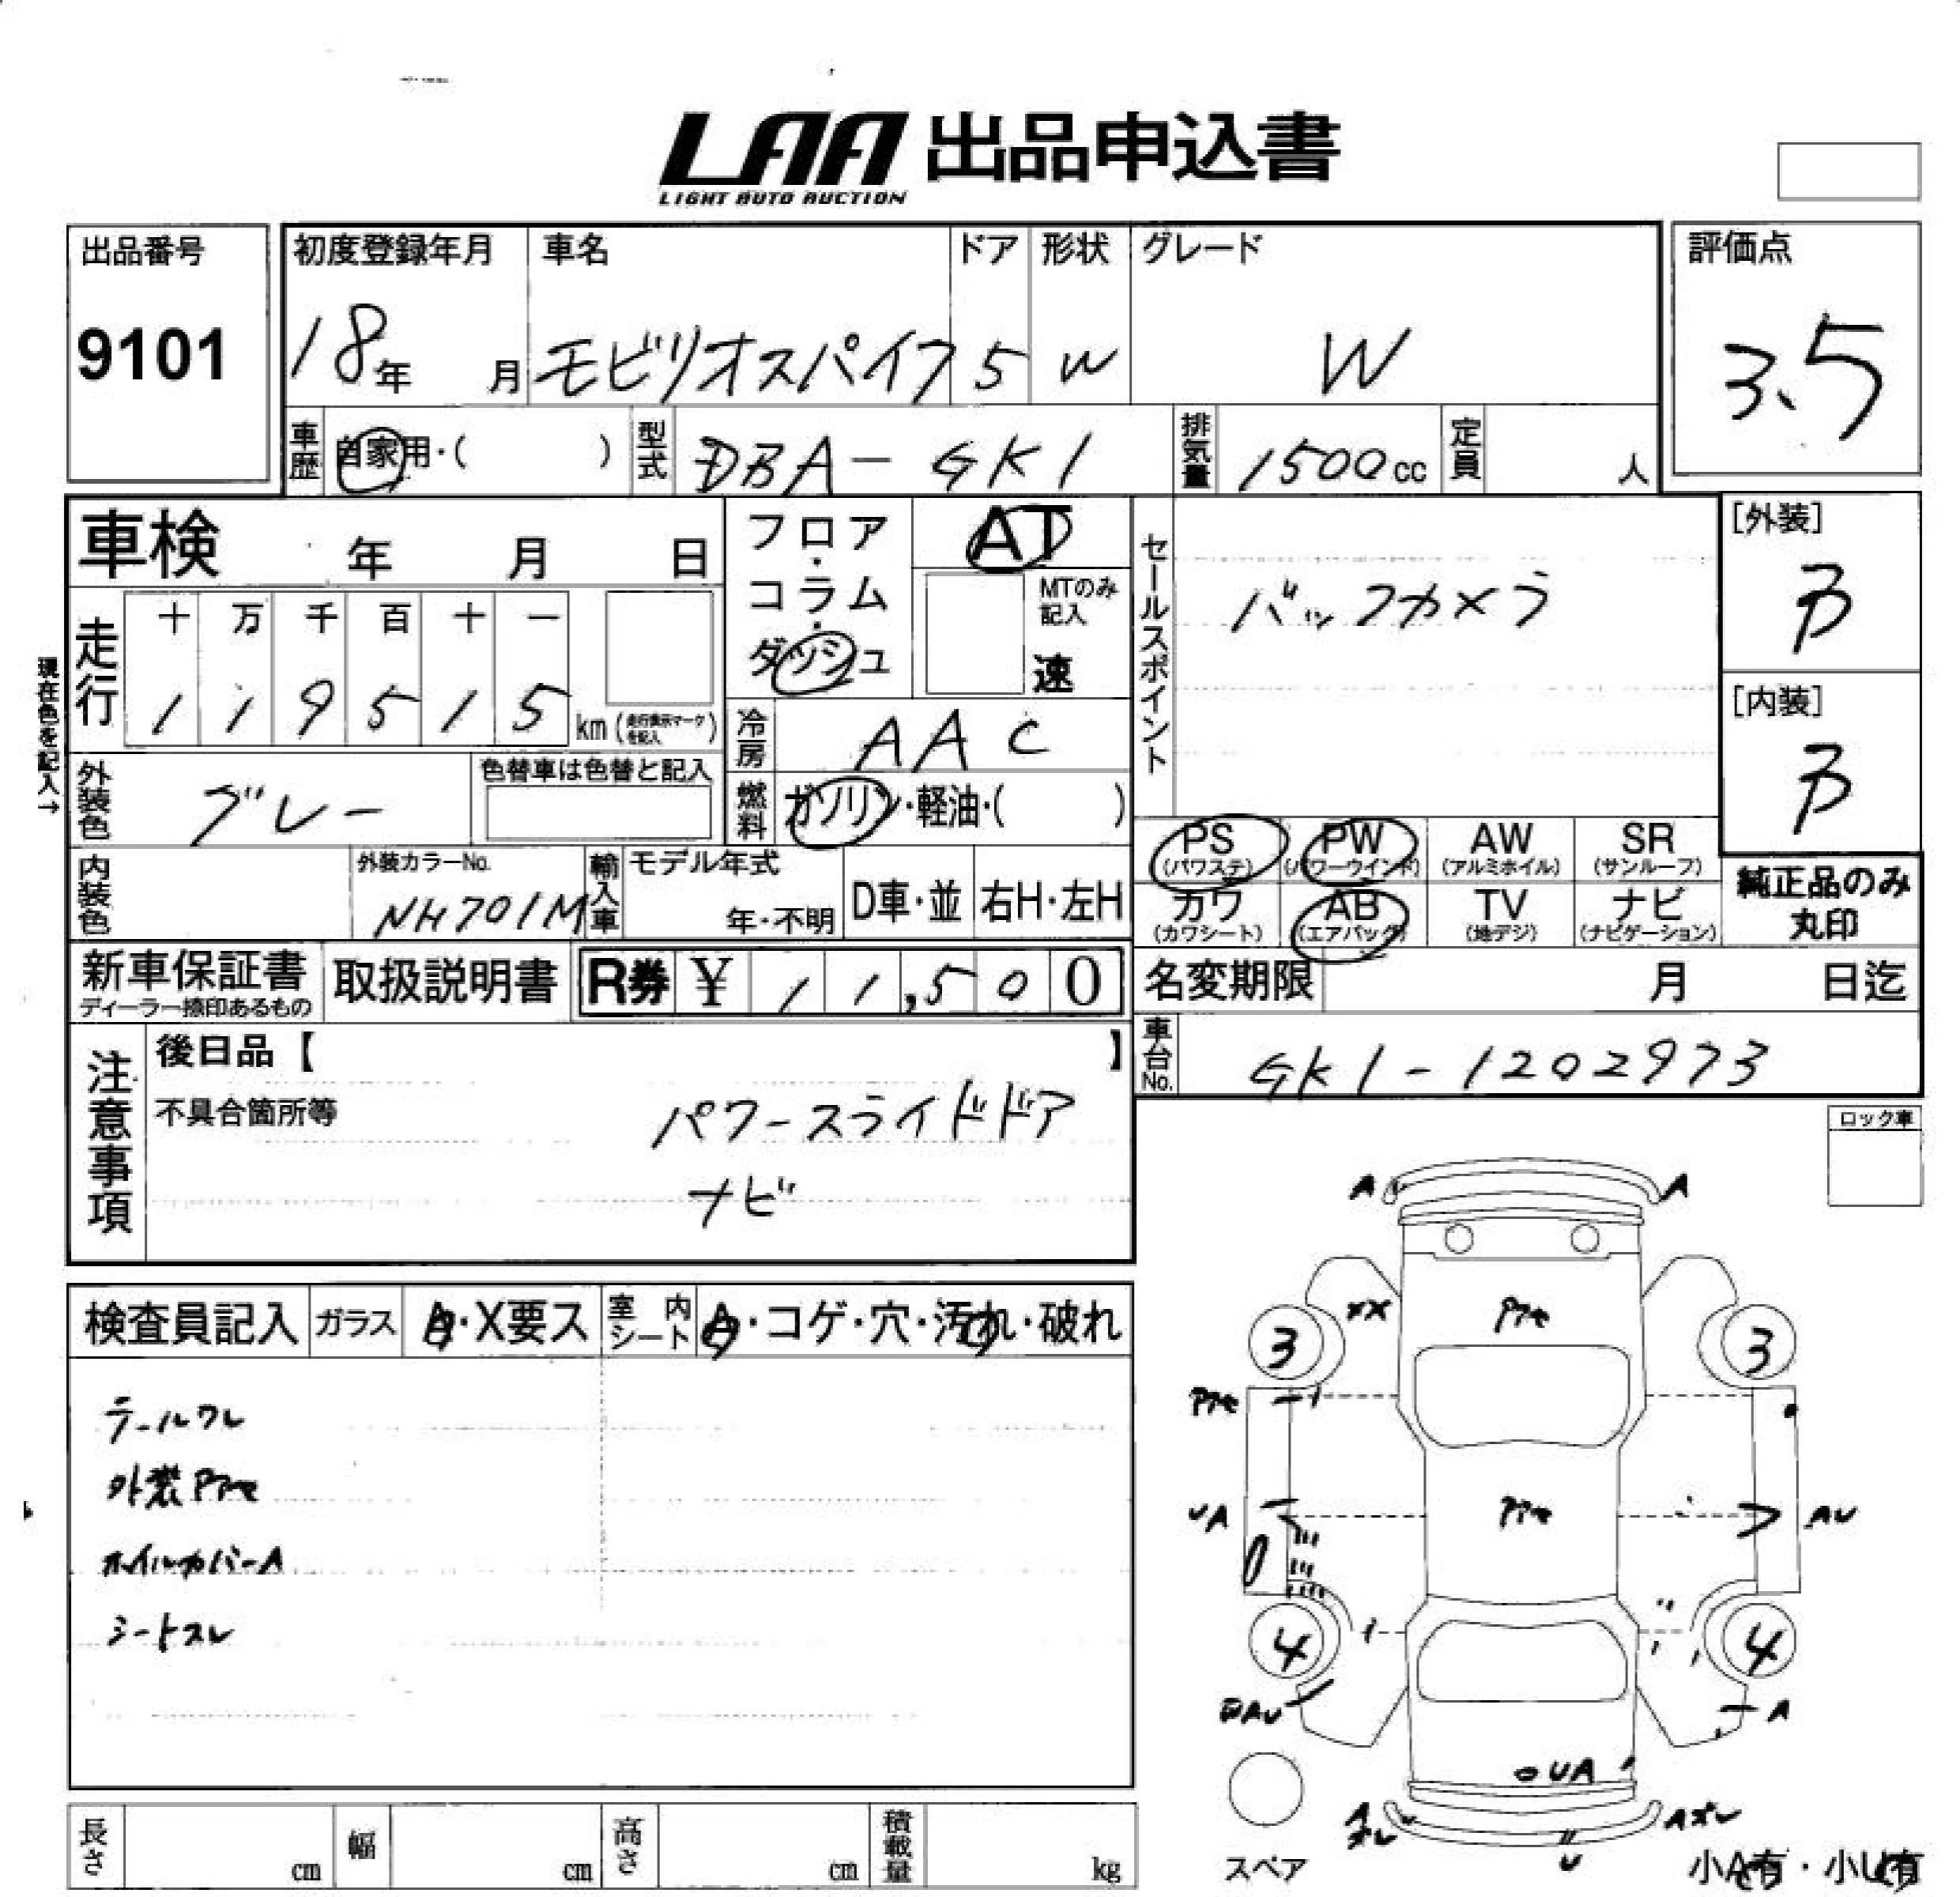 LAA 出品申込書
LIGHT AUTO AUCTION
出品番号
9101
初度登録年月
18年 月
車名
モビリオスパイク
ドア
5
形状
W
グレード
W
評価点
3.5
車歴 自家用・( )
型式 DBA-GK1
排気量 1500cc
定員 人
車検 年 月 日
フロア・コラム・ダッシュ
AT
MTのみ記入
速
セールスポイント
バックカメラ
[外装]
B
[内装]
B
現在色を記入→
走行
十 万 千 百 十 一
1 1 9 5 1 5 km (走行表示マークを記入)
冷房 AAC
外装色 グレー
色替車は色替と記入
燃料 ガソリン・軽油・( )
内装色
外装カラーNo.
NH701M
輸入車
モデル年式
年・不明
D車・並
右H・左H
PS (パワステ)
PW (パワーウインド)
AW (アルミホイル)
SR (サンルーフ)
カワ (カワシート)
AB (エアバック)
TV (地デジ)
ナビ (ナビゲーション)
純正品のみ丸印
新車保証書
ディーラー捺印あるもの
取扱説明書
R券 ¥ 11,500
名変期限 月 日迄
車台No. GK1-1202973
注意事項
後日品【 】
不具合箇所等
パワースライドドア
ナビ
ロック車
検査員記入
ガラス A・X要ス
室内シート A・コゲ・穴・汚れ・破れ
テールワレ
外装Pアセ
ホイルカバーA
シートスレ
A A
XX Pアセ
3 3
Pアセ
UA Pアセ AU
4 4
AU A
UA
A ズレ Aズレ
U
スペア
小A有・小U有
長さ cm
幅 cm
高さ cm
積載量 kg